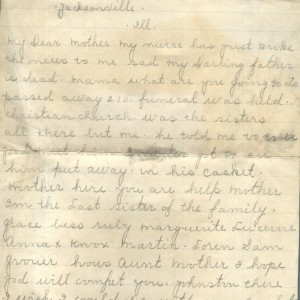 Jacksonville.
Ill.
My Dear mother my nurse has just broke
the news to me sad my Darling father
is dead. mama what are you going to do
passed away 2 10. funeral was held.
christian church was the sisters
all there but me. he told me to
him put away in his casket.
mother here you are help mother
I'm the Last sister of the family.
grace bess ruby marguerite Lucerne
Anna x Knox martin. Loren Sam
grover hows Aunt mother I hope
God will comfort you. johnston there